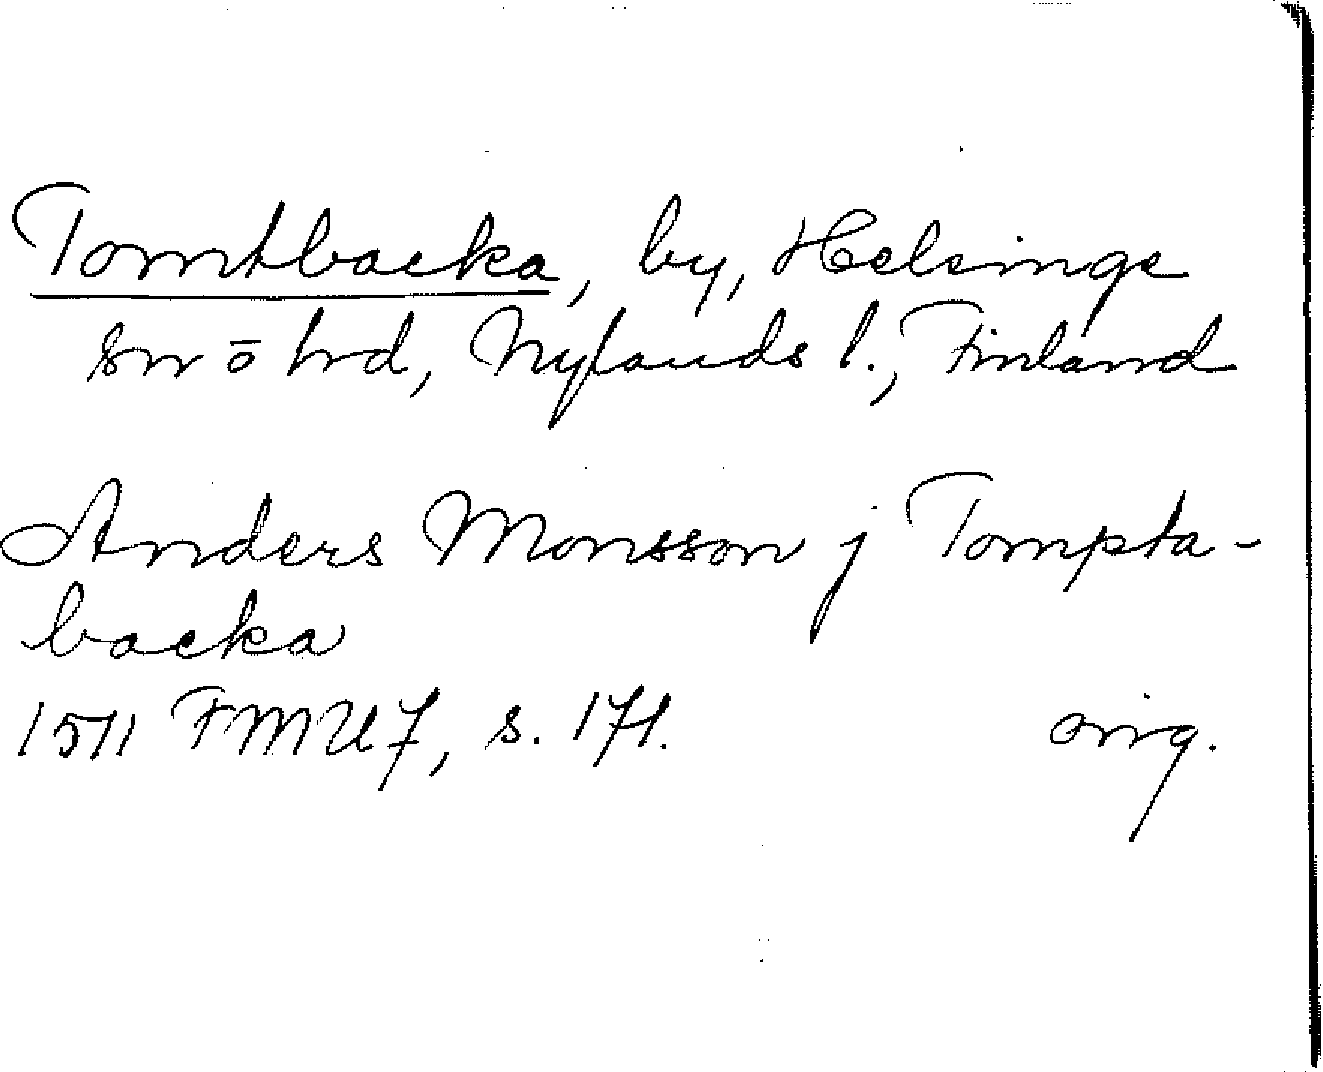 Tomtbacka, by, Helsinge
sn ō hd, Nylands l., Finland
Anders Monsson j Tompta-
backa
1511 FMU 7, s. 171. orig.